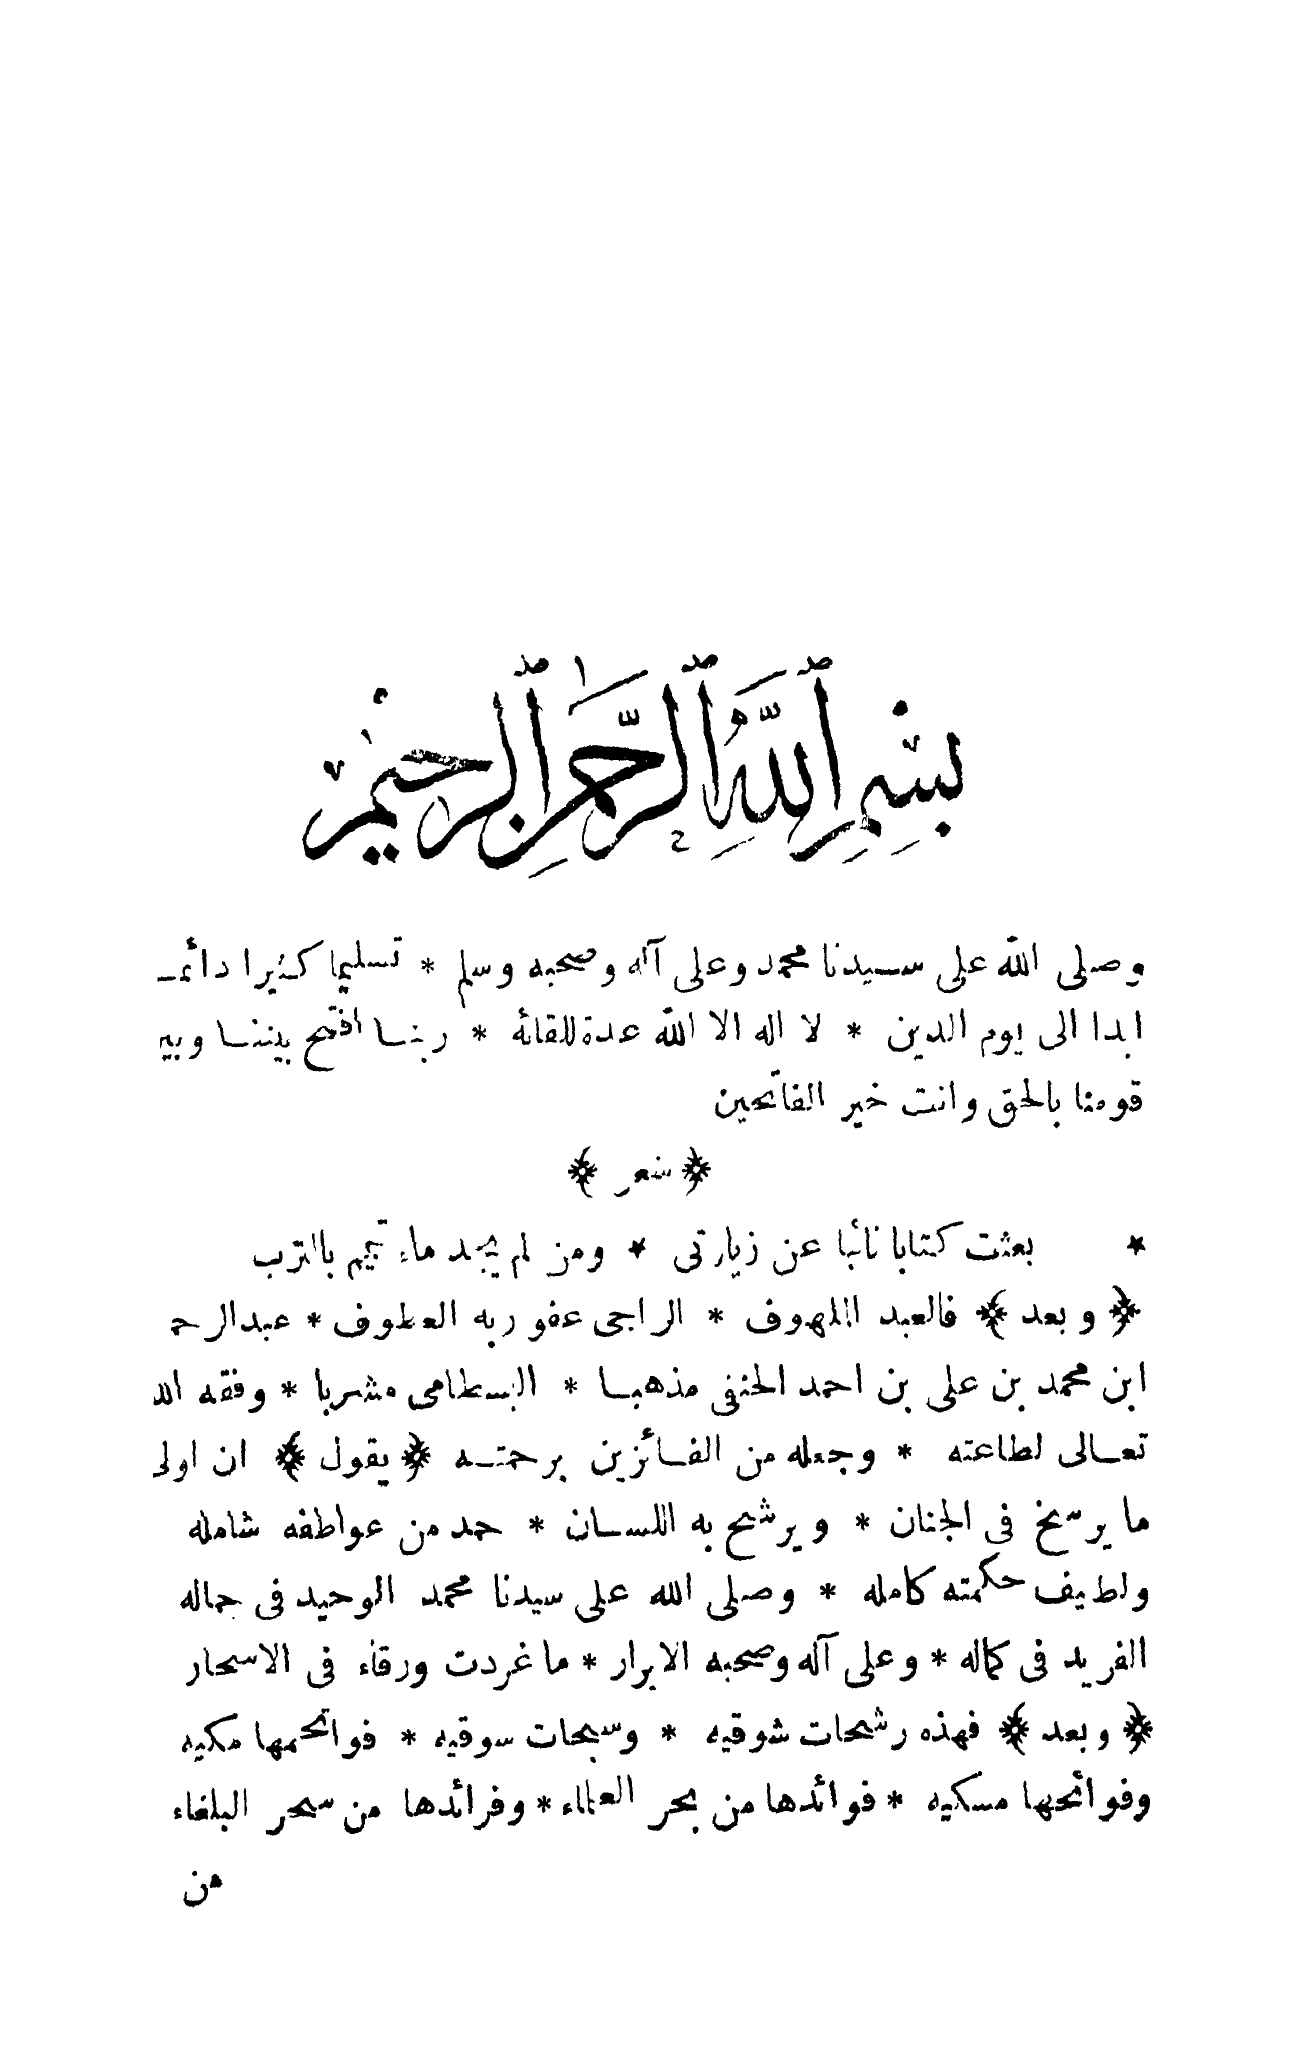 بِسْمِ ٱللَّهِ ٱلرَّحْمٰنِ ٱلرَّحِيمِ
وصلى الله على سيدنا محمد وعلى آله وصحبه وسلم * تسليما كثيرا دائمـ
ابدا الى يوم الدين * لا اله الا الله عدة للقائه * ربنا افتح بيننا وبين
قومنا بالحق وانت خير الفاتحين
﴿ شعر ﴾
* بعثت كتابا نائبا عن زيارتى * ومن لم يجد ماء تيمم بالترب
﴿ وبعد ﴾ فالعبد الملهوف * الراجى عفو ربه العطوف * عبدالرحـ
ابن محمد بن على بن احمد الحنفى مذهبا * البسطامى مشربا * وفقه الله
تعالى لطاعته * وجعله من الفائزين برحمته ﴿ يقول ﴾ ان اولى
ما يرسخ فى الجنان * ويرشح به اللسان * حمد من عواطفه شامله
ولطيف حكمته كامله * وصلى الله على سيدنا محمد الوحيد فى جماله
الفريد فى كماله * وعلى آله وصحبه الابرار * ما غردت ورقاء فى الاسحار
﴿ وبعد ﴾ فهذه رشحات شوقيه * وسبحات سوقيه * فواتحها مكيه
وفوائحها مسكيه * فوائدها من بحر العلماء * وفرائدها من سحر البلغاء
من